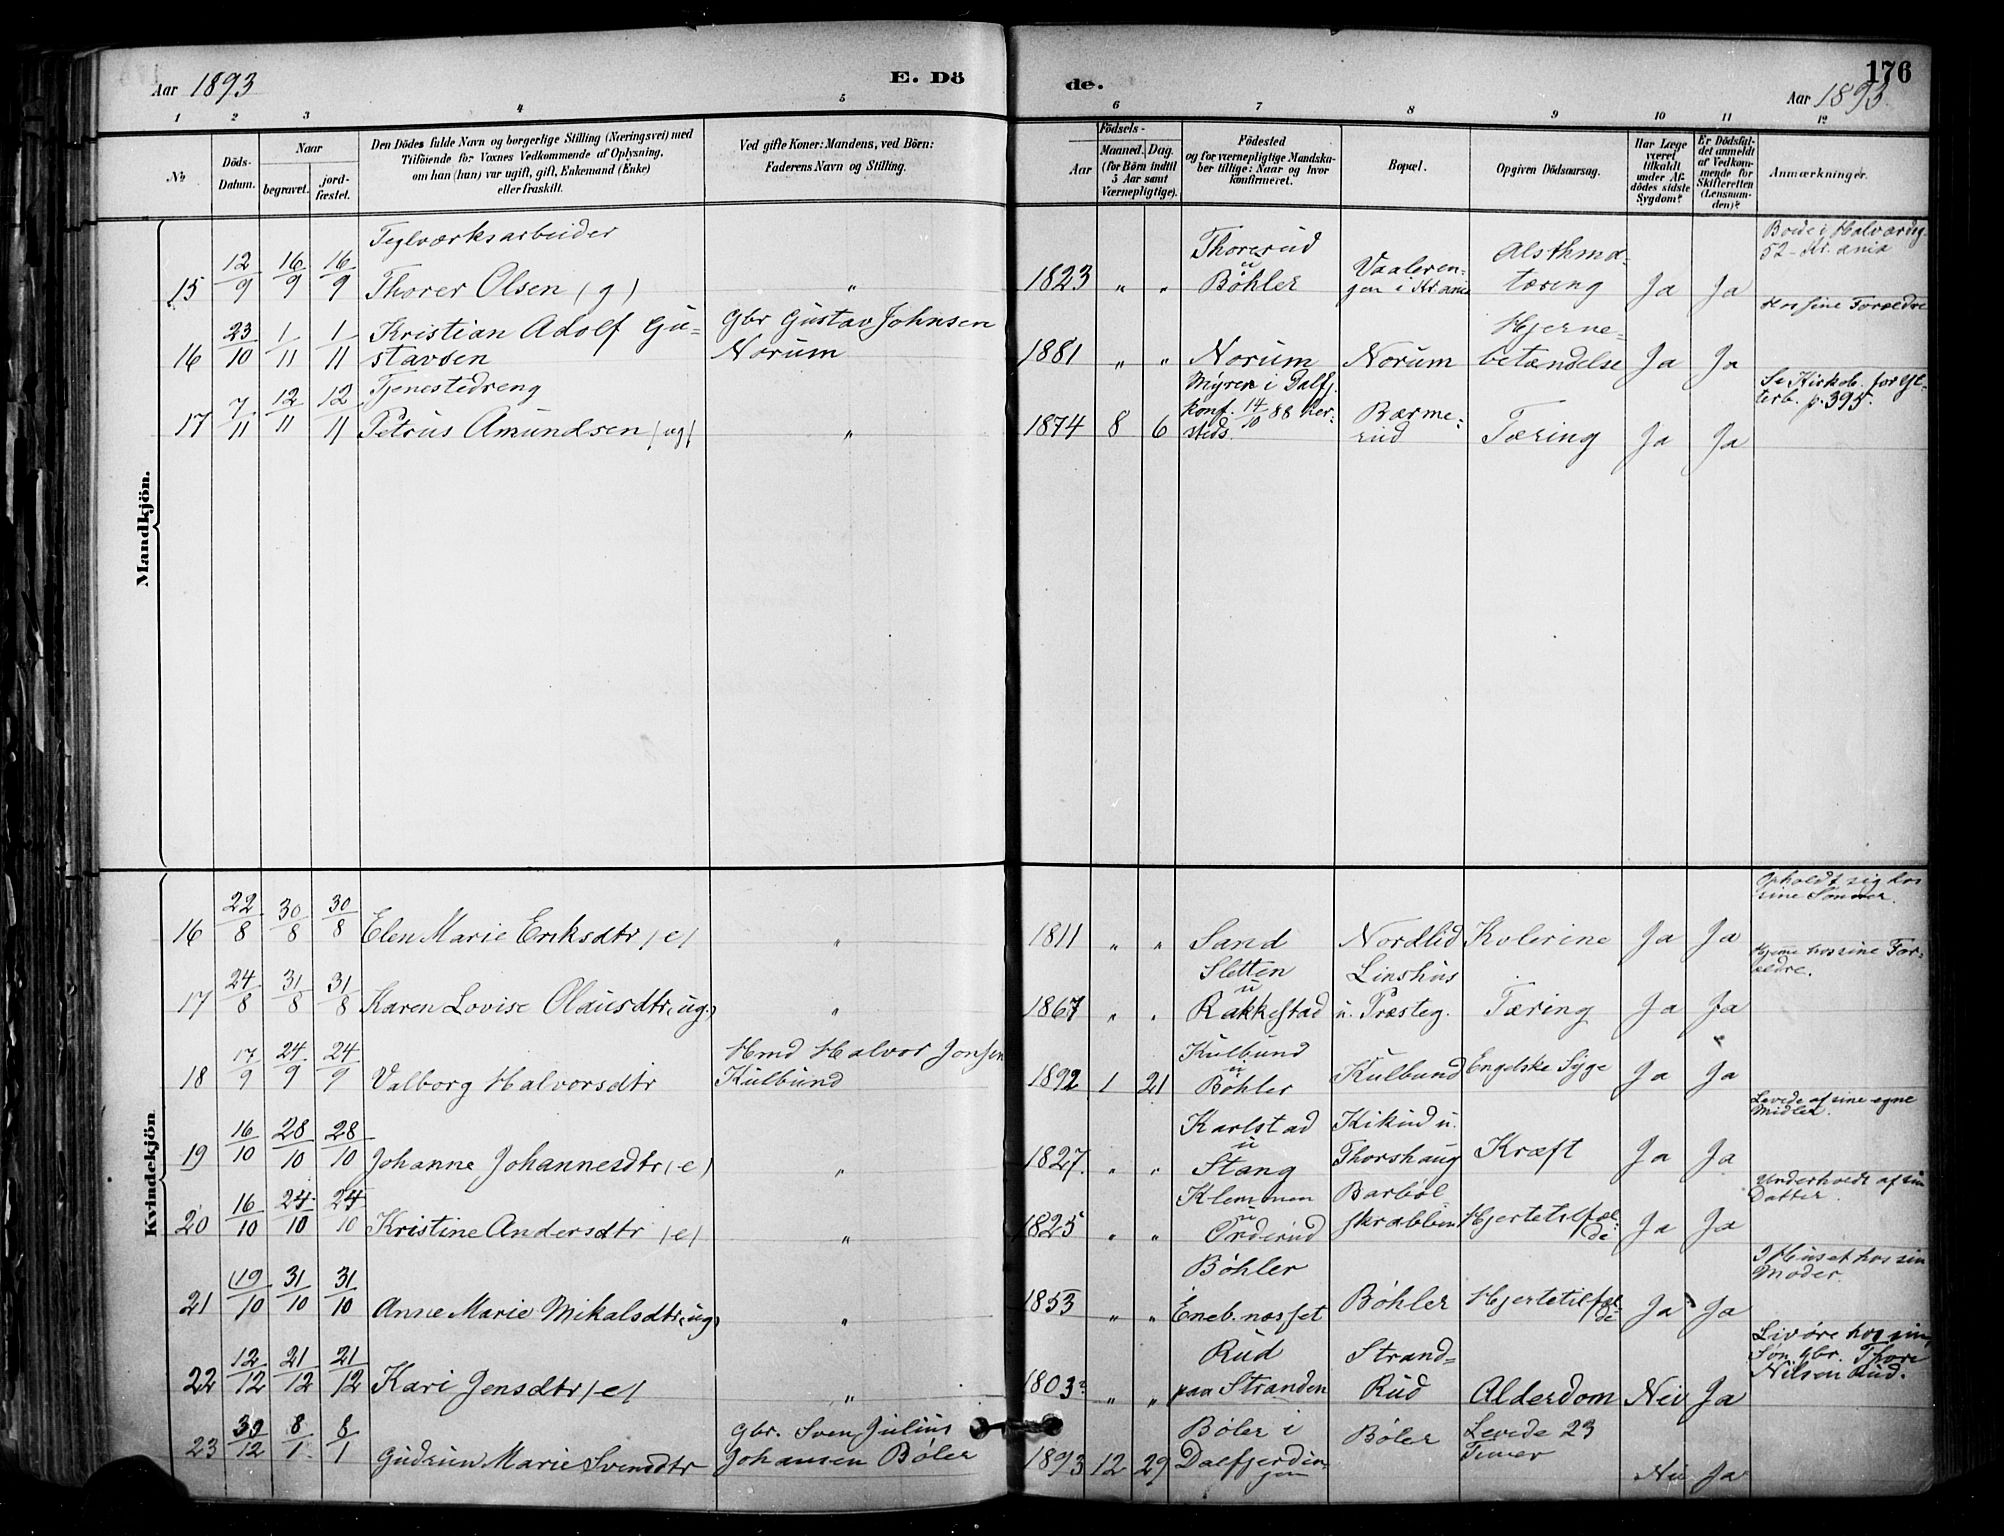 Aar 1893
E. Dö
de.
176
Aar 1893.
1 2 3 4 5 6 7 8 9 10 11 12
No
Döds-Datum.
Naar
begravet.
jord-fæstet.
Den Dödes fulde Navn og borgerlige Stilling (Næringsvei) med
Tilföiende for Voxnes Vedkommende af Oplysning,
om han (hun) var ugift, gift, Enkemand (Enke)
eller fraskilt.
Ved gifte Koner: Mandens, ved Börn:
Faderens Navn og Stilling.
Födsels-
Aar
Maaned. Dag.
(for Börn indtil
5 Aar samt
Værnepligtige).
Födested
og for værnepligtige Mandska-
ber tillige: Naar og hvor
konfirmeret.
Bopæl.
Opgiven Dödsaarsag.
Har Læge
været
tilkaldt
under Af-
dödes sidste
Sygdom?
Er Dödsfal-
det anmeldt
af Vedkom-
mende for
Skifteretten
(Lensman-
den)?
Anmærkninger.
Mandkjön.
15 12/9 16/9 16/9 Teglværksarbeider
Thorer Olsen (g) „ 1823 „ „ Thorerud
u
Bøhler Vaaleren-
gen i Kr.ania Alsthma-
tæring Ja Ja Boede i Halvardsg.
52 - Kr.ania
16 23/10 1/11 1/11 Kristian Adolf Gu-
stavsen Gbr Gustav Johnsen
Norum 1881 „ „ Norum Norum Hjerne-
betændelse Ja Ja Hos sine Forældre
17 7/11 12/11 12/11 Tjenestedreng
Petrus Amundsen (ug) „ 1874 8 6 Myren i Dalfj.
konf. 14/10 88 her-
steds. Bærme-
rud Tæring Ja Ja Se Kirkeb. for Yt-
terb. p. 395.
Kvindekjön
16 22/8 30/8 30/8 Elen Marie Eriksdtr (e) „ 1811 „ „ Sand Nordlid Kolerine Ja Ja Opholdt sig hos
sine Sønner.
17 24/8 31/8 31/8 Karen Lovise Olausdtr (ug.) „ 1867 „ „ Sletten
u
Rakkestad Linshus
u. Præsteg. Tæring Ja Ja Hjeme hos sine For-
ældre.
18 17/9 24/9 24/9 Valborg Halvorsdtr Hmd Halvor Jonsen
Kulbund 1892 1 21 Kulbund
u
Bøhler Kulbund Engelske Syge Ja Ja
19 16/10 28/10 28/10 Johanne Johannesdtr (e) „ 1827. „ „ Karlstad
u
Stang Kikud u.
Thorshaug Kræft Ja Ja Levede af sine egne
Midler.
20 16/10 24/10 24/10 Kristine Andersdtr (e) „ 1825 „ „ Klemmen
u
Orderud Barbøl
skrabben Hjertetilfæl-
de Ja Ja Underholdt af sin
Datter.
21 19/10 31/10 31/10 Anne Marie Mikalsdtr (ug) „ 1853 „ „ Bøhler
i
Eneb.næsset Bøhler Hjertetilfæl-
de Ja Ja I Huset hos sin
Moder.
22 12/12 21/12 21/12 Kari Jensdtr (e) „ 1803? „ „ Rud
paa Stranden Strand-
Rud Alderdom Nei Ja Livøre hos sin
Søn gbr. Thore
Nilsen Rud.
23 30/12 8/1 8/1 Gudrun Marie Svensdtr Gbr. Sven Julius
Johansen Bøler 1893 12 29 Bøler i
Dalfjerdin-
gen Bøler Levede 23
Timer Nei Ja